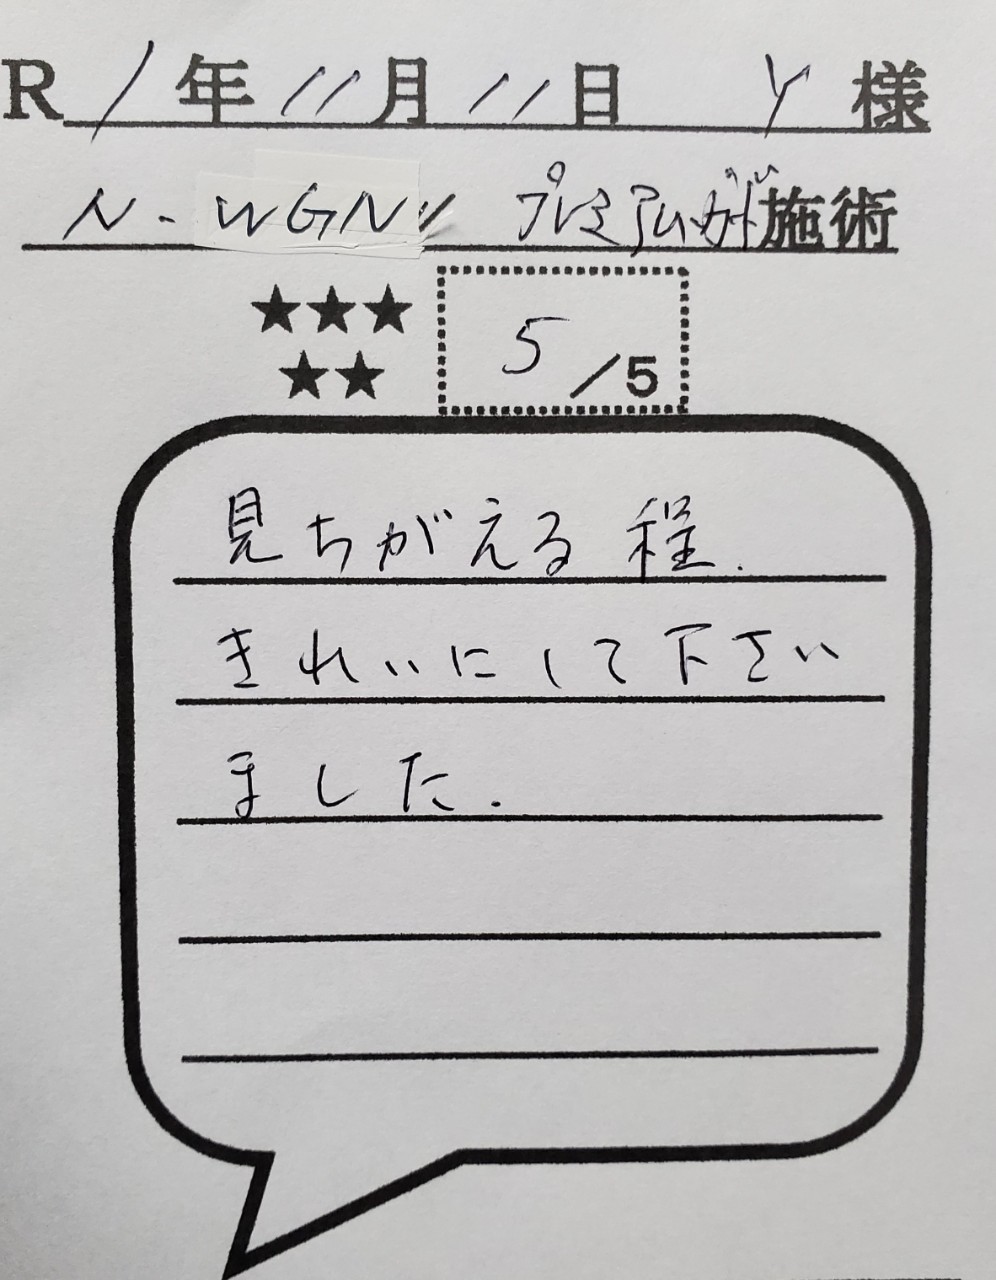 R 1年 11月 11日 Y 様
N-WGN プレミアム 施術
★★★
★★
5/5
見ちがえる程.
きれいにして下さい
ました.